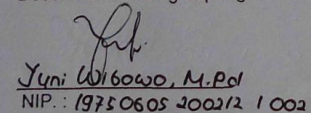 Yuni Wibowo, M.Pd
NIP.: 19750605 200212 1 002